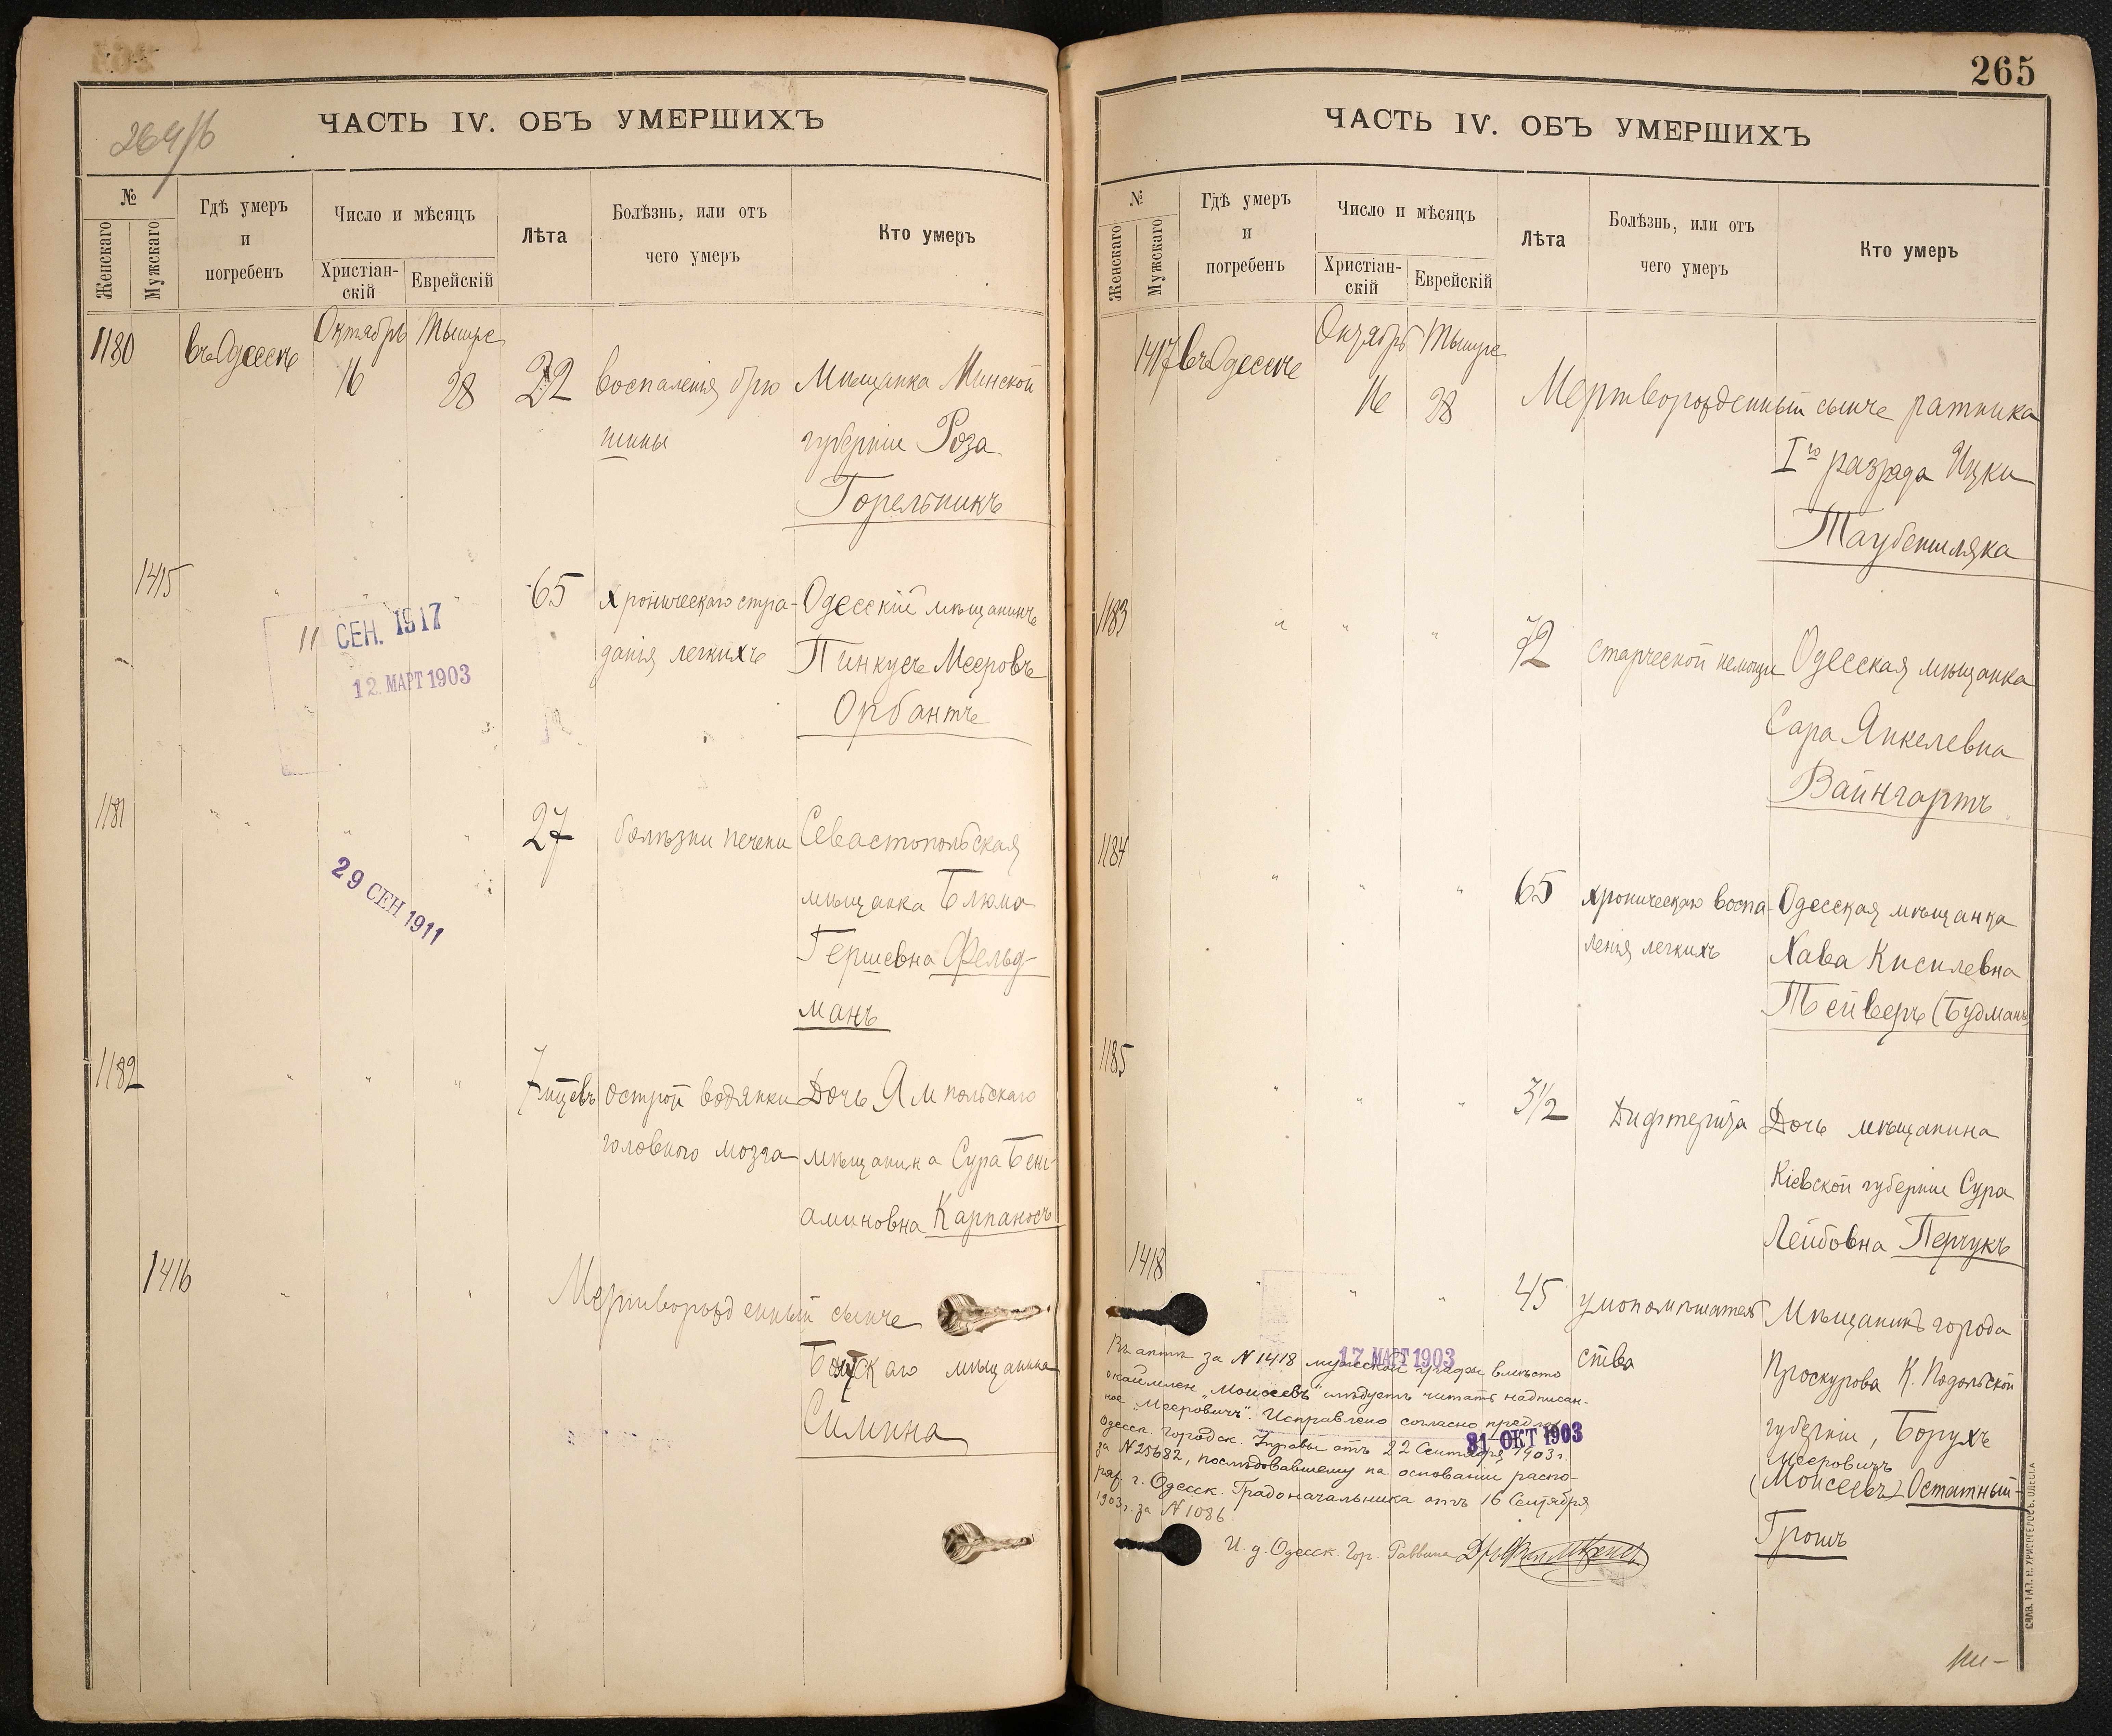 264/б
ЧАСТЬ IV. ОБЪ УМЕРШИХЪ
№
Женскаго
Мужскаго
Гдѣ умеръ
и
погребенъ
Число и мѣсяцъ
Христіан-
скій
Еврейскій
Лѣта
Болѣзнь, или отъ
чего умеръ
Кто умеръ
1180 въ Одессѣ Октябрь 16 Тышре 28 22 воспаленія брю Мѣщанка Минской
шины губерніи Роза
Горельникъ
1415 " " " 65 хроническаго стра- Одесскій мѣщанинъ
данія легкихъ Пинкусъ Мееровъ
Орбантъ
11 СЕН. 1917
12. МАРТ 1903
1181 " " " " 27 болѣзни печени Севастопольская
мѣщанка Блюма
Гершевна Фельд-
манъ
29 СЕН 1911
1182 " " " 7 мцевъ острой водянки Дочь Ямпольскаго
головного мозга мѣщанина Сура Бені-
аминовна Карпаносъ
1416 " " " Мертворожденный сынъ
мѣщанина
Силина
265
ЧАСТЬ IV. ОБЪ УМЕРШИХЪ
№
Женскаго
Мужскаго
Гдѣ умеръ
и
погребенъ
Число и мѣсяцъ
Христіан-
скій
Еврейскій
Лѣта
Болѣзнь, или отъ
чего умеръ
Кто умеръ
1417 въ Одессѣ Октябрь 16 Тышре 28 Мертворожденный сынъ ратника
Iго разряда Ицки
Таубеншляка
1183 " " " 72 старческой немощи Одесская мѣщанка
Сара Янкелевна
Вайнгартъ
1184 " " " 65 хроническаго воспа- Одесская мѣщанка
ленія легкихъ Хава Кисилевна
Тейверъ (Будманъ)
1185 " " " 3½ Дифтерита Дочь мѣщанина
Кіевской губерніи Сура
Лейбовна Перчукъ
1418 " " " 45 умопомѣшатель Мѣщанинъ города
ства Проскурова К. Подольской
губерніи, Борухъ
Мееровичъ
(Моисеевъ) Остатный-
Грошъ
17 МАРТ 1903
Въ актѣ за №1418 мужской графы вмѣсто
окаймлен. „Моисеевъ" слѣдуетъ читать надписан-
ное „Мееровичъ". Исправлено согласно предлож.
Одесск. Городск. Управы отъ 22 Сентября 1903 г.
за №25682, послѣдовавшему на основаніи распо-
ряж. г. Одесск. Градоначальника отъ 16 Сентября
1903 г. за №1086.
31 ОКТ 1903
И. д. Одесск. Гор. Раввина